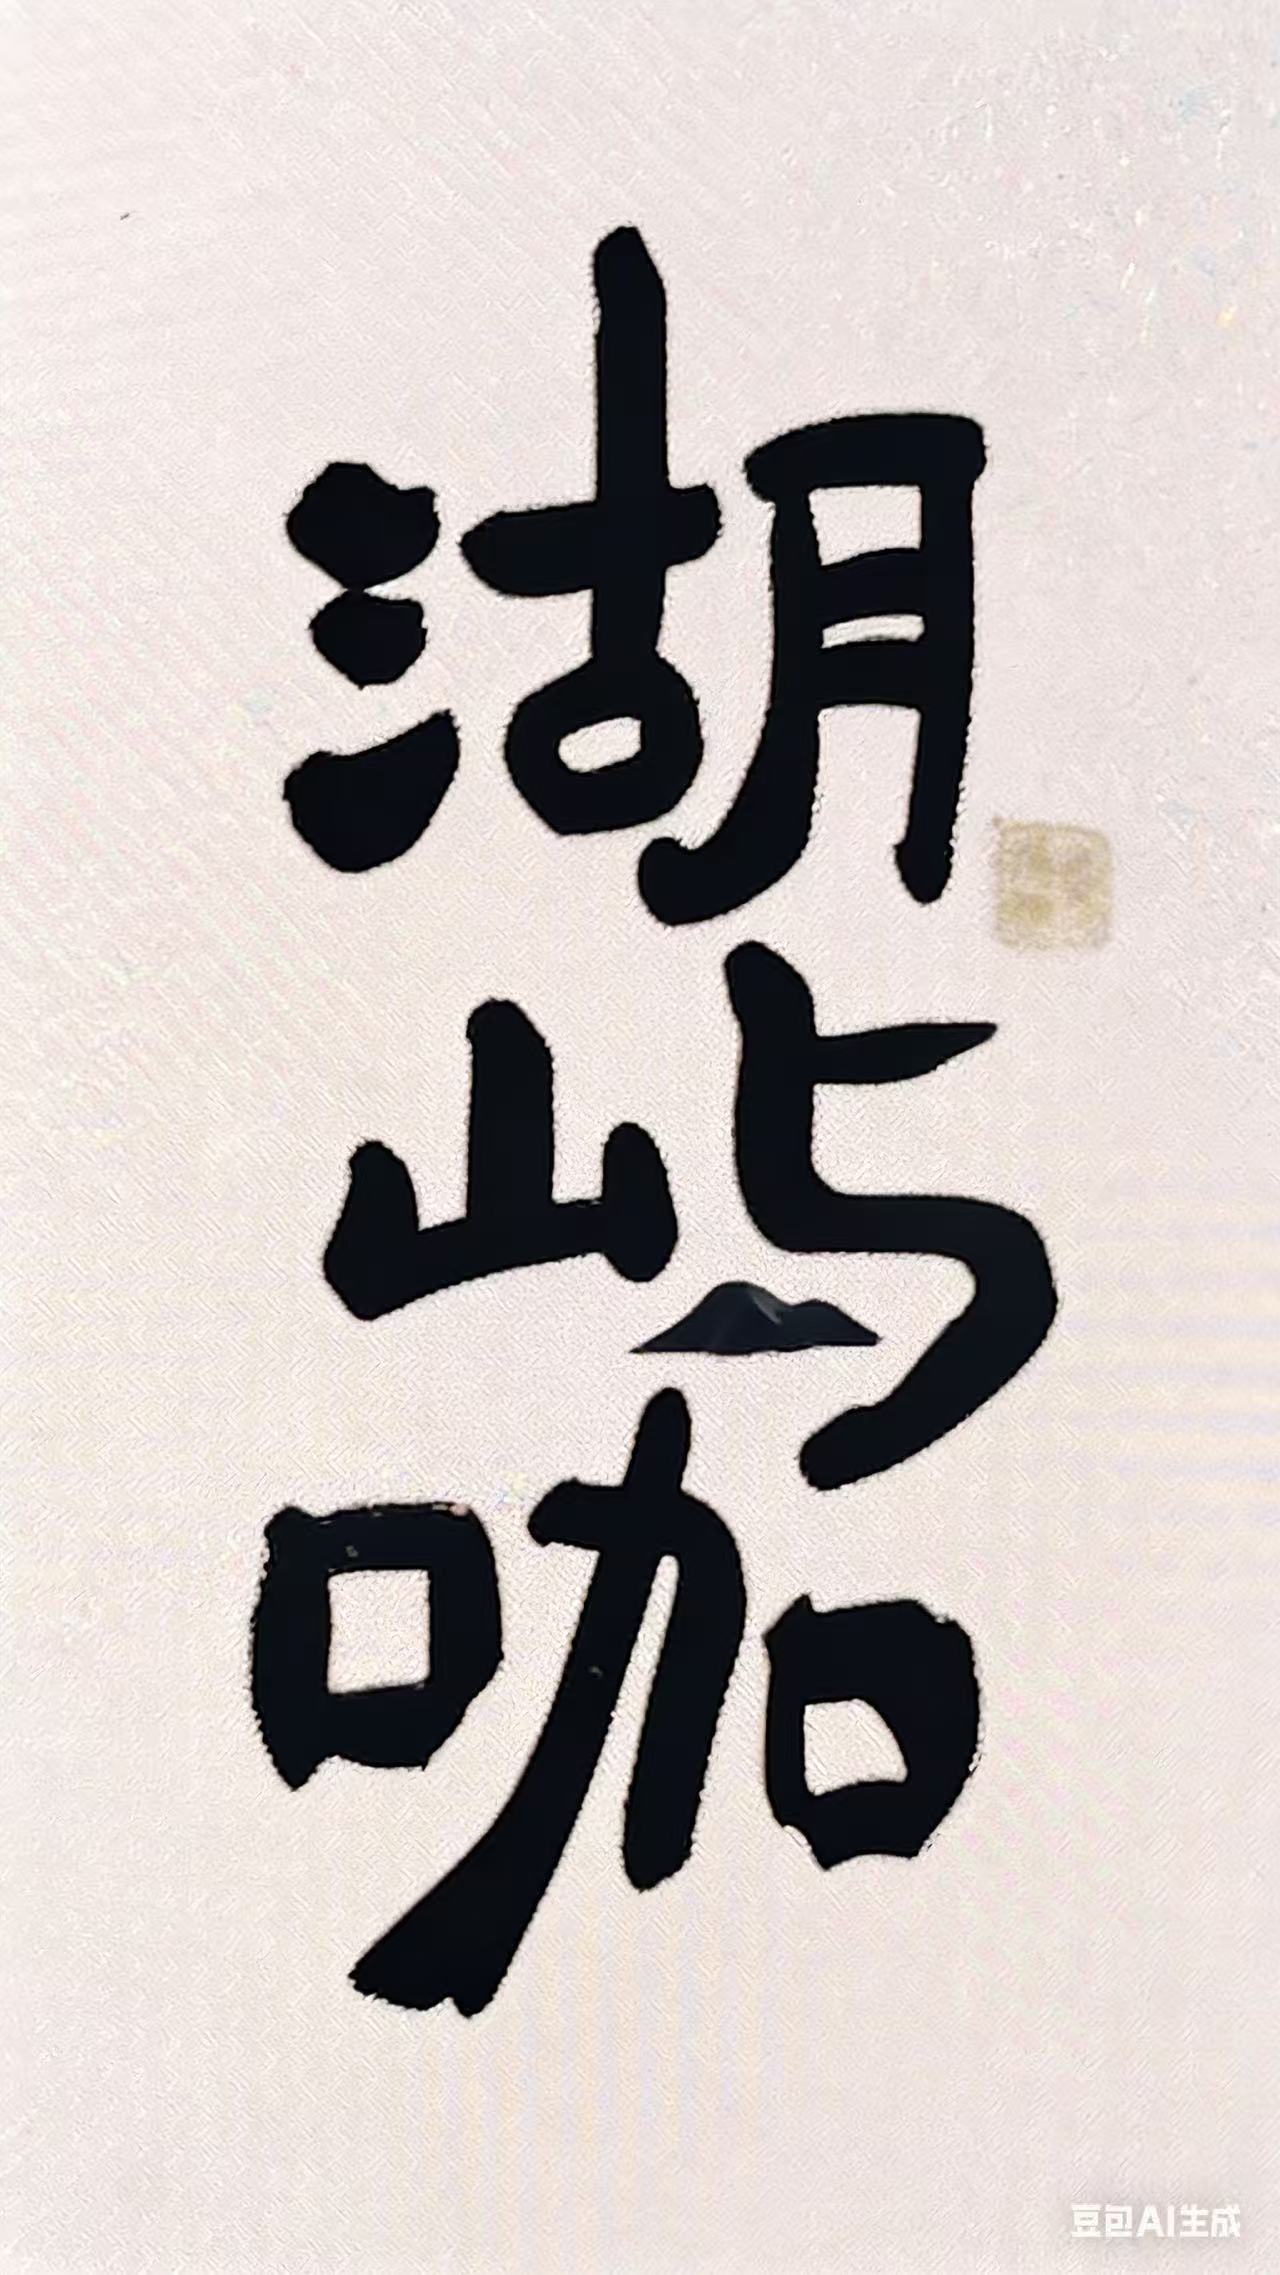 湖
屿
咖
豆包AI生成